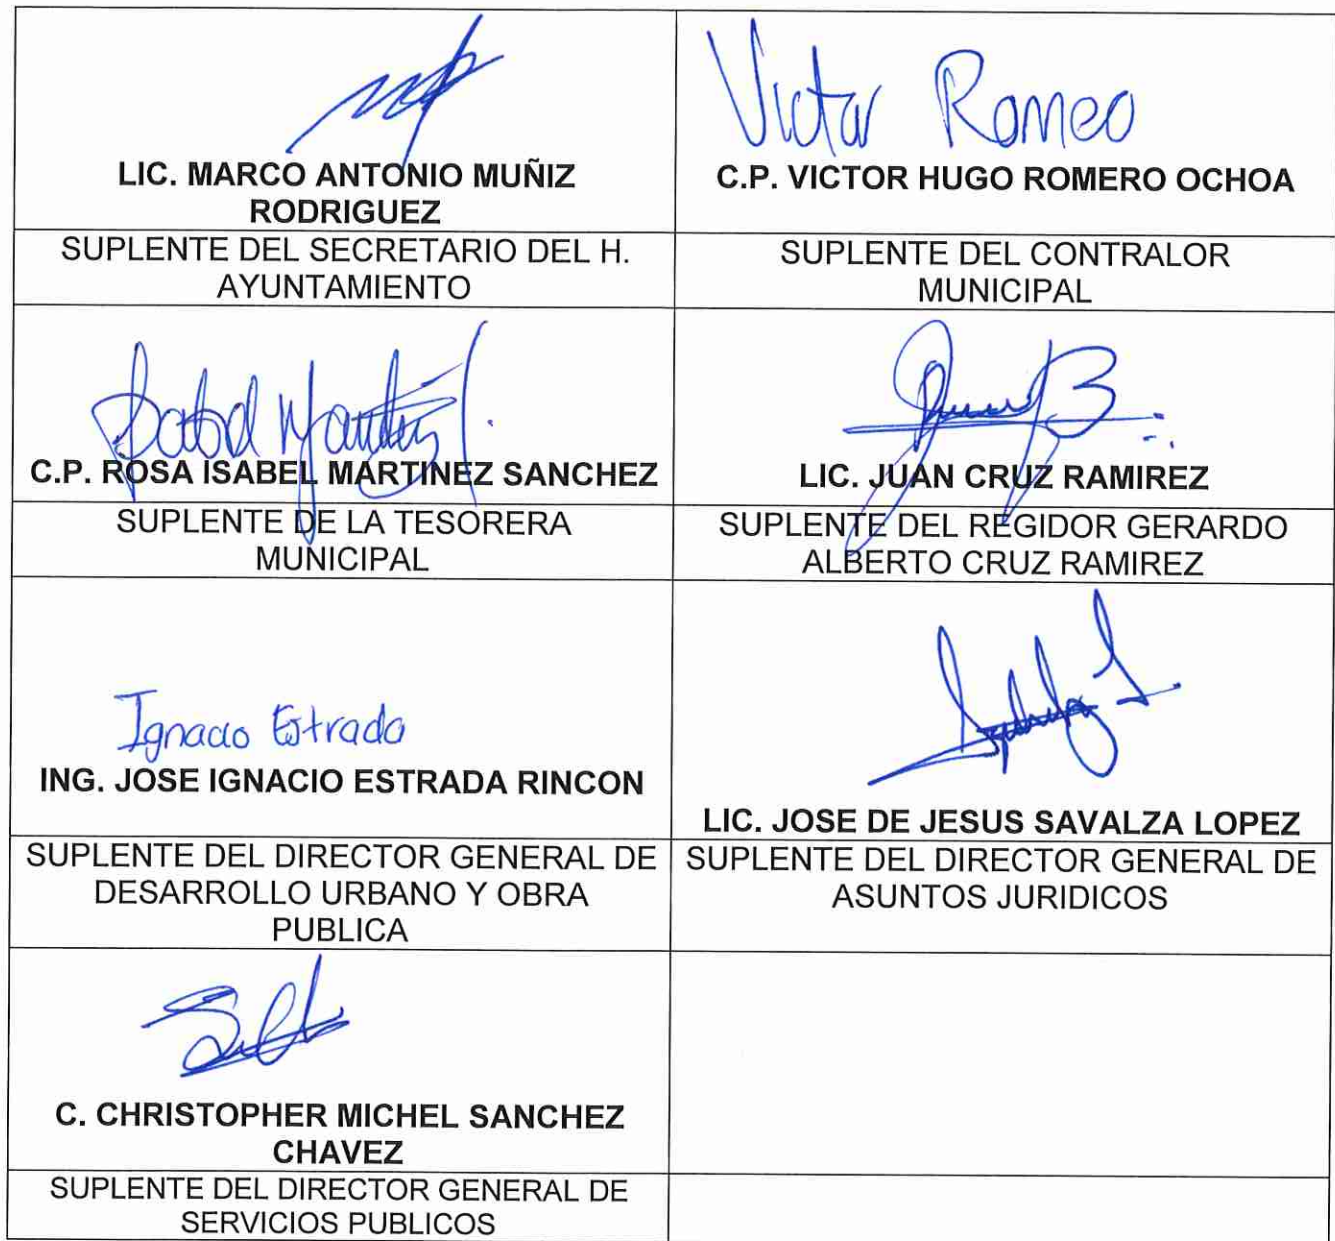 Victor Romeo
LIC. MARCO ANTONIO MUÑIZ
RODRIGUEZ
C.P. VICTOR HUGO ROMERO OCHOA
SUPLENTE DEL SECRETARIO DEL H.
AYUNTAMIENTO
SUPLENTE DEL CONTRALOR
MUNICIPAL
Isabel Martinez S.
C.P. ROSA ISABEL MARTINEZ SANCHEZ
LIC. JUAN CRUZ RAMIREZ
SUPLENTE DE LA TESORERA
MUNICIPAL
SUPLENTE DEL REGIDOR GERARDO
ALBERTO CRUZ RAMIREZ
Ignacio Estrada
ING. JOSE IGNACIO ESTRADA RINCON
LIC. JOSE DE JESUS SAVALZA LOPEZ
SUPLENTE DEL DIRECTOR GENERAL DE
DESARROLLO URBANO Y OBRA
PUBLICA
SUPLENTE DEL DIRECTOR GENERAL DE
ASUNTOS JURIDICOS
C. CHRISTOPHER MICHEL SANCHEZ
CHAVEZ
SUPLENTE DEL DIRECTOR GENERAL DE
SERVICIOS PUBLICOS